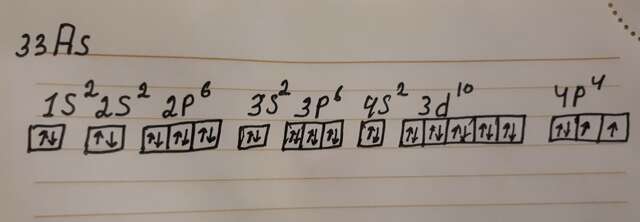 33As
1s² 2s² 2p⁶ 3s² 3p⁶ 4s² 3d¹⁰ 4p⁴
↑↓ ↑↓ ↑↓ ↑↓ ↑↓ ↑↓ ↑↓ ↑↓ ↑↓ ↑↓ ↑↓ ↑↓ ↑↓ ↑↓ ↑↓ ↑↓ ↑ ↑